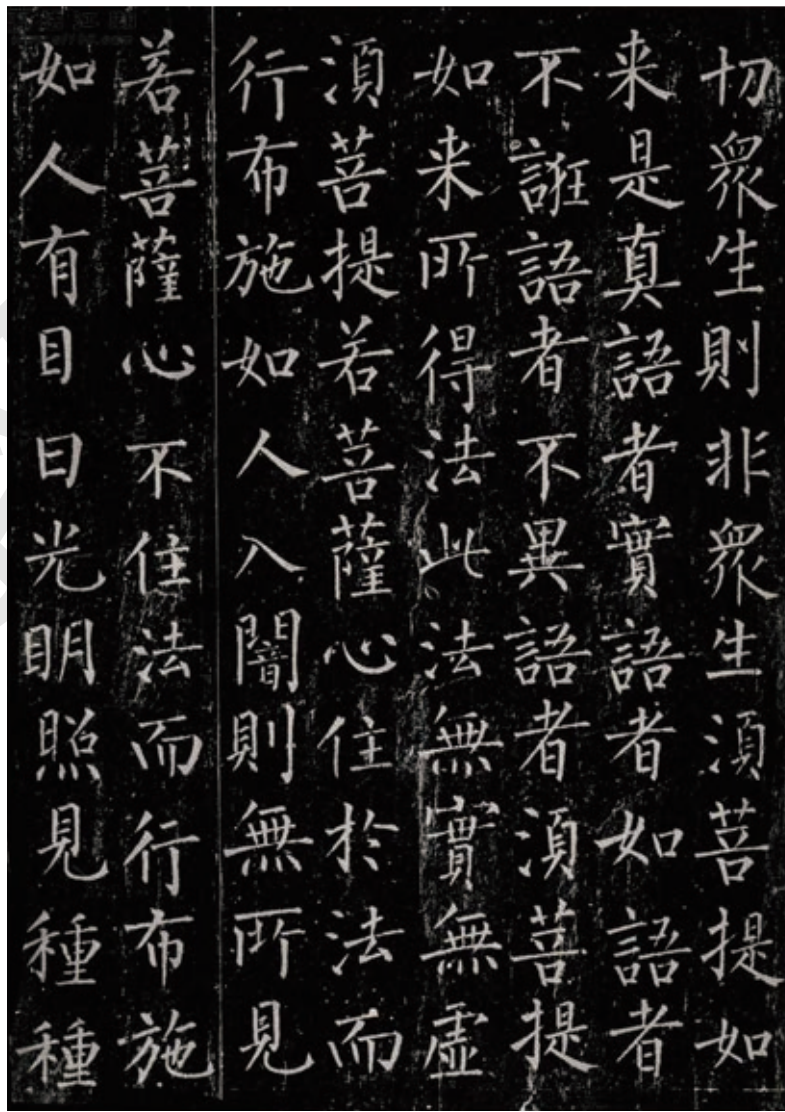 切衆生則非衆生湏菩提如
来是真語者實語者如語者
不誑語者不異語者湏菩提
如来所得法此法無實無虛
湏菩提若菩薩心住於法而
行布施如人入闇則無所見
若菩薩心不住法而行布施
如人有目日光明照見種種